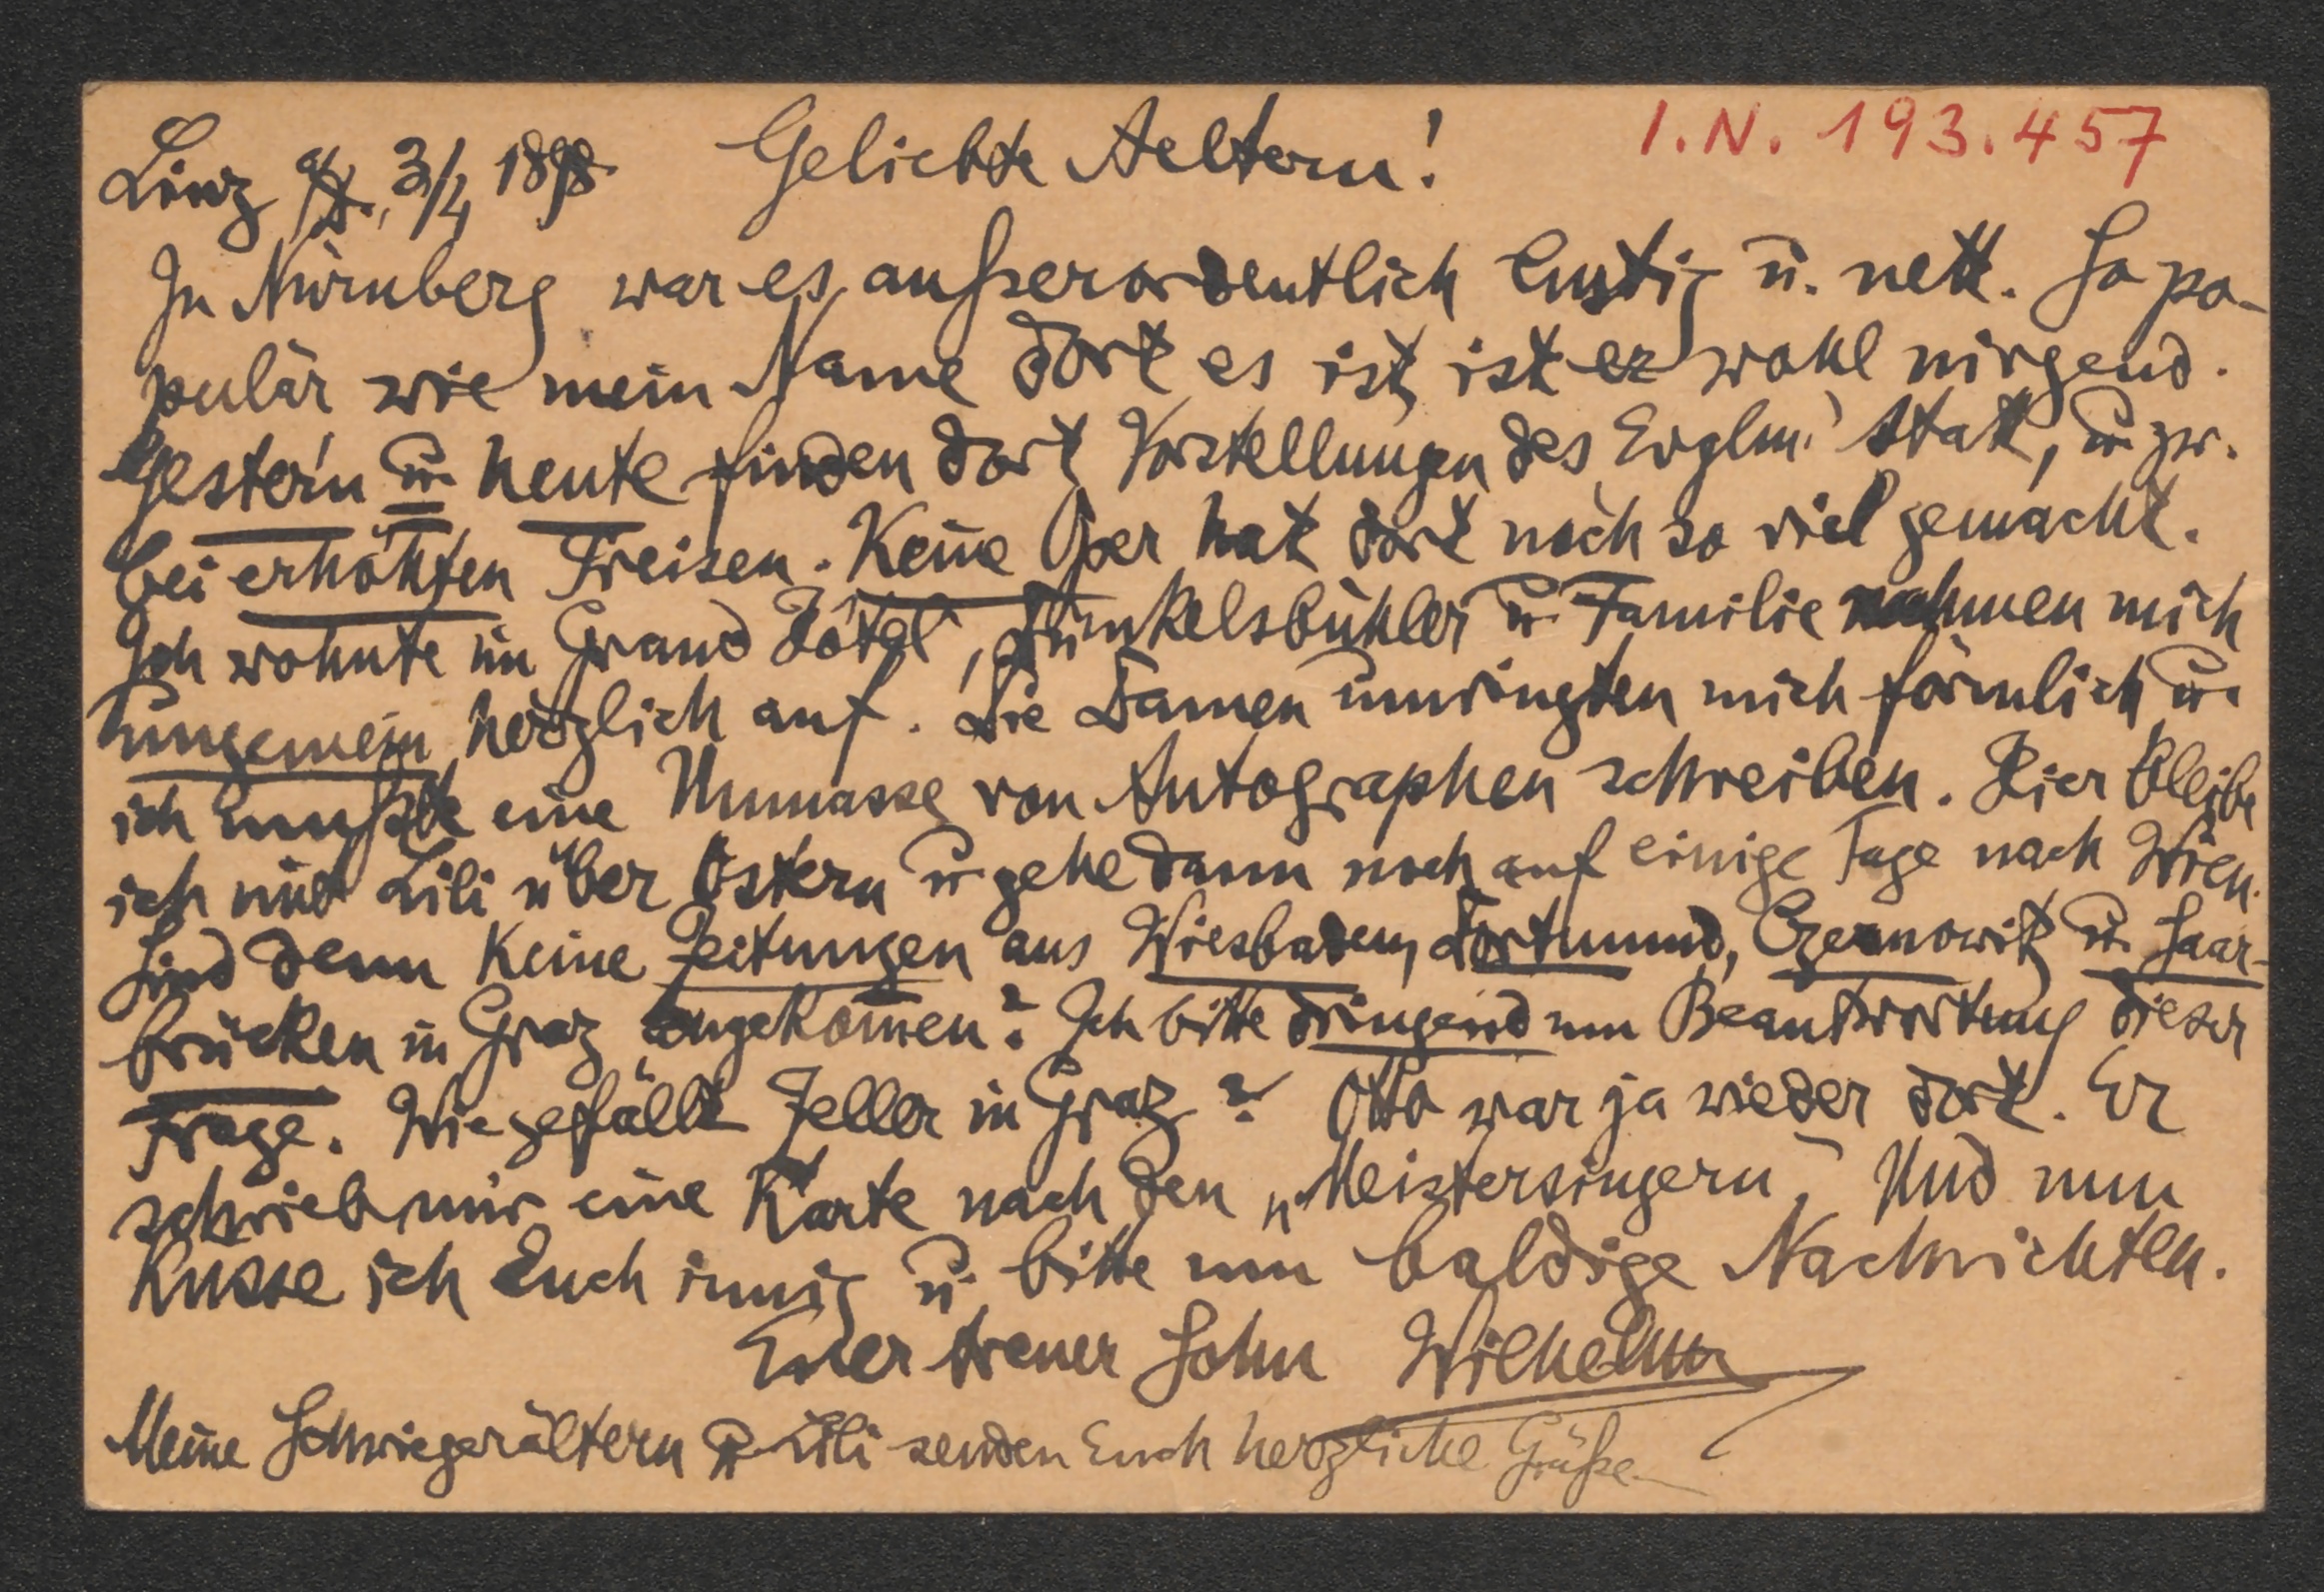 Linz a/D., 3/4 1898 Geliebte Aeltern! I.N. 193.457
In Nürnberg war es außerordentlich lustig u. nett. So po-
pulär wie mein Name dort es ist, ist er wohl nirgend.
Gestern u. heute finden dort Vorstellungen des Evglm. statt, u. zw.
bei erhöhten Preisen. Keine Oper hat dort noch so viel gemacht.
Ich wohnte im Grand Hôtel, Dünkelsbühler u. Familie nahmen mich
ungemein herzlich auf. Die Damen umringten mich förmlich u.
ich mußte eine Unmasse von Autographen schreiben. Hier bleibe
ich mit Lili über Ostern u. gehe dann noch auf einige Tage nach Wien.
Sind denn keine Zeitungen aus Wiesbaden, Dortmund, Czernowitz u. Saar-
brücken in Graz angekommen? Ich bitte dringend um Beantwortung dieser
Frage. Wie gefällt Zeller in Graz? Otto war ja wieder dort. Er
schrieb mir eine Karte nach den „Meistersingern". Und nun
küsse ich Euch innig u. bitte um baldige Nachrichten.
Euer treuer Sohn Wilhelm
Meine Schwiegerältern u. Lili senden Euch herzliche Grüße